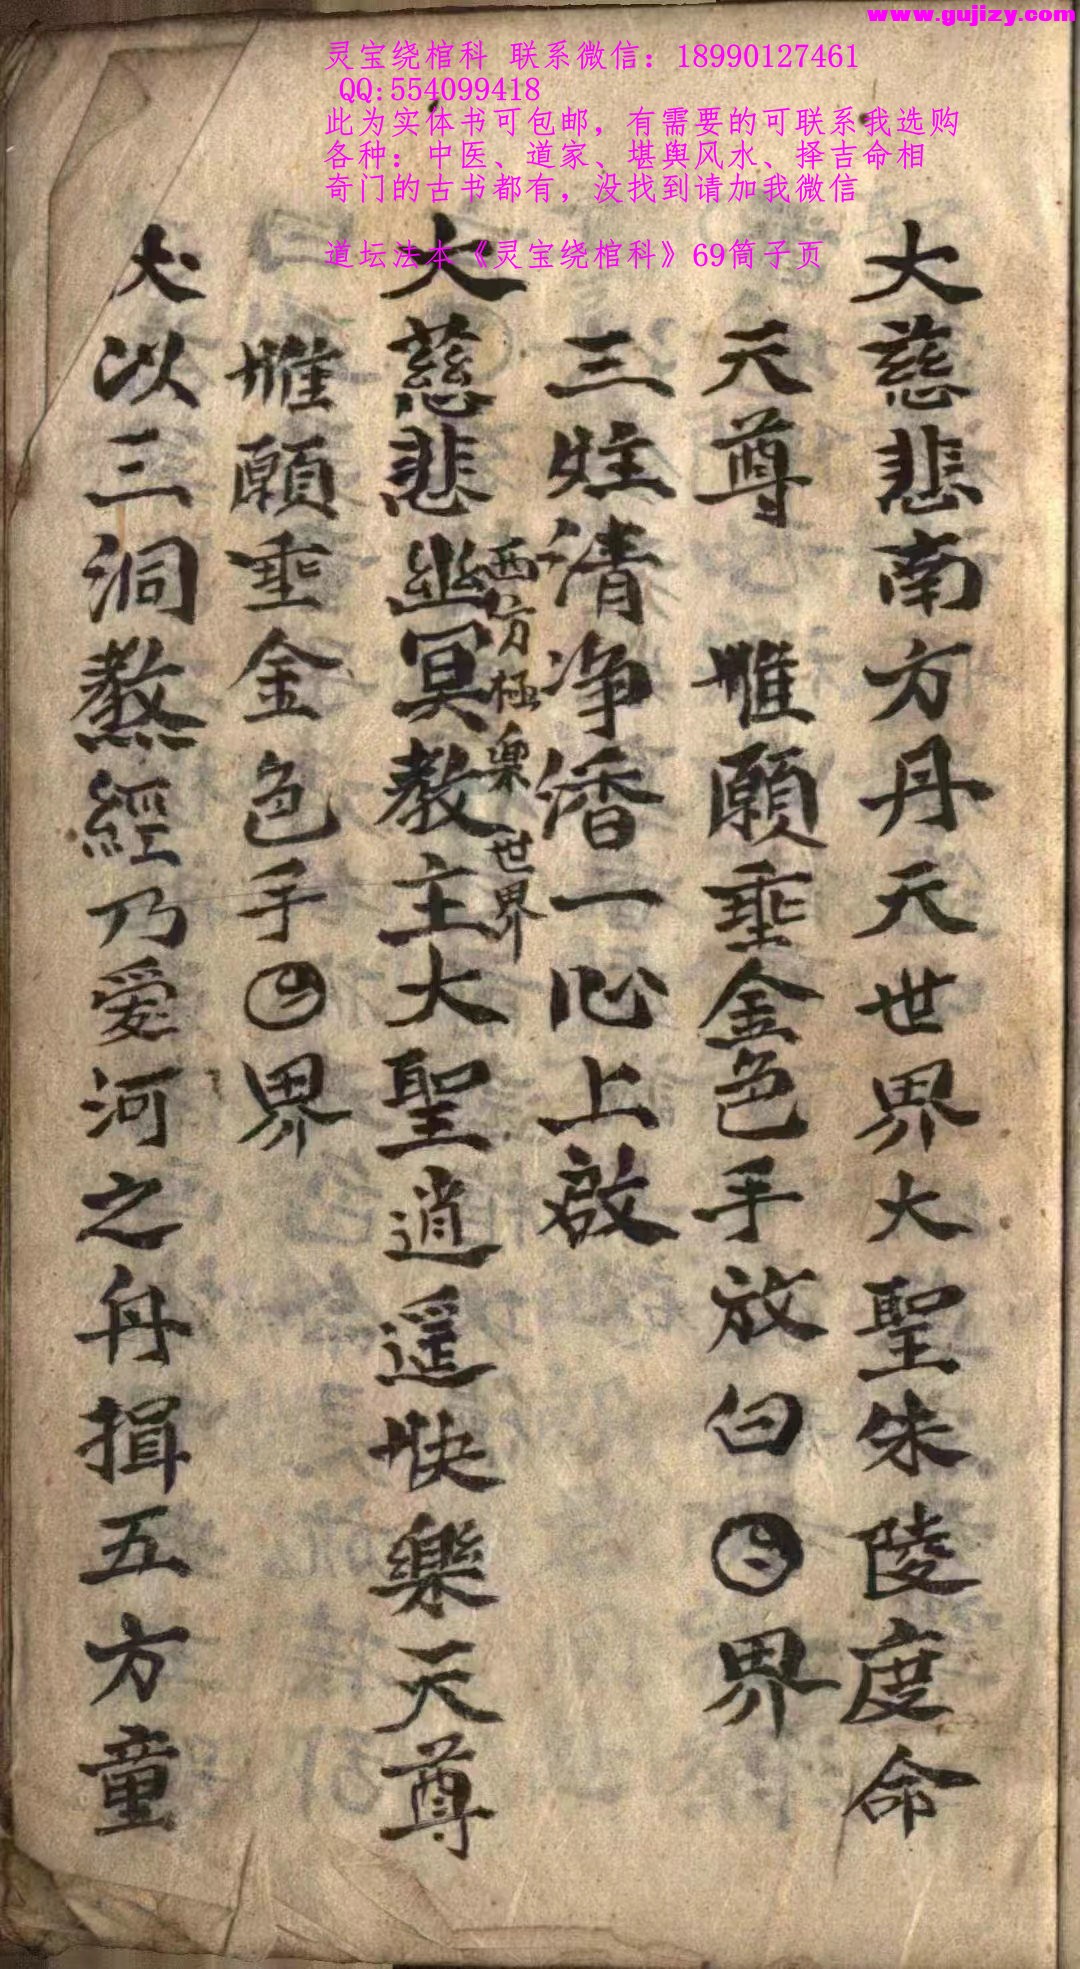 www.gujizy.com
灵宝绕棺科 联系微信：18990127461
QQ:554099418
此为实体书可包邮，有需要的可联系我选购
各种：中医、道家、堪舆风水、择吉命相
奇门的古书都有，没找到请加我微信
道坛法本《灵宝绕棺科》69筒子页
大慈悲南方丹天世界大聖朱陵度命
天尊 惟願垂金色手放曰界
三炷清净香一心上啟
西方極樂世界
大慈悲幽冥教主大聖逍遥快樂天尊
惟願垂金色手界
以三洞教經乃爱河之舟揖五方童